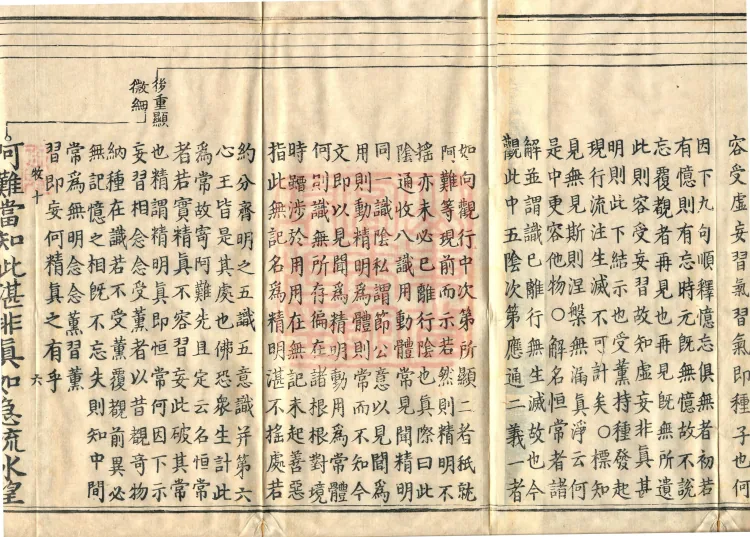 容受虛妄習氣習氣即種子也何
因下九句順釋憶忘俱無者初若
有憶則有忘時元既無憶故不說
忘覆觀者再見也再見既無所遺
此則容受妄習故知虛妄非真甚
明則此下結示也受薰持種發起
現行流注生滅不可計矣〇標知
見無見斯則涅槃無漏真淨云何
是中更容他物〇解名恒常者諸
解並謂識已離行無生滅故也今
觀此中五陰次第應通二義一者
如向觀行中次第所顯二者秖就
阿難等現前而示若然則精明不
搖亦未必已離行陰也真際曰此
陰通收八識用動體常見聞精明
同一識陰私謂節公意以見聞為
用則動精明為體則常而不知今
文即以見聞為精明動用為常體
何則識無所存徧在諸根根對境
時躡涉於用用在無記未起善惡
指此無記名為精明湛不搖處若
約分齊明之五識五意識并第六
心王皆是其處也佛恐衆生計此
為常故寄阿難先且定云名恒常
者若實精真不容習妄此破其常
也精謂精明真即恒常何因下示
妄習相念念受薰者以昔觀奇物
納種在識若不受薰覆觀前異必
無記憶之相既不忘失則知中間
常為無明念念薰習薰
習即妄何精真之有乎
後重顯
微細
阿難當知此湛非真如急流水望
牧十
六